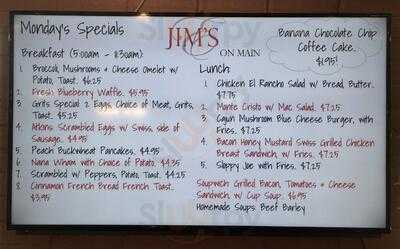 Monday's Specials
Breakfast (5:00am - 8:30am):
1. Broccoli, Mushrooms + Cheese Omelet w/
Potato, Toast. $6.25
2. Fresh Blueberry Waffle. $5.95
3. Grits Special 2 Eggs, Choice of Meat, Grits,
Toast. $5.25
4. Atkins: Scrambled Eggs w/ Swiss, side of
Sausage. $4.95
5. Peach Buckwheat Pancakes. $4.95
6. Nana Wham with Choice of Potato. $4.35
7. Scrambled w/ Peppers, Potato, Toast. $4.25
8. Cinnamon French Bread French Toast.
$3.95
JIM'S
ON MAIN
Banana Chocolate Chip
Coffee Cake.
$1.95!
Lunch:
1. Chicken El Rancho Salad w/ Bread, Butter.
$7.75
2. Monte Cristo w/ Mac Salad. $7.25
3. Cajun Mushroom Blue Cheese Burger, with
Fries. $7.25
4. Bacon Honey Mustard Swiss Grilled Chicken
Breast Sandwich, w/ Fries. $7.25
5. Sloppy Joe with Fries. $7.25
Soupwich: Grilled Bacon, Tomatoes + Cheese
Sandwich, w/ Cup Soup. $6.95
Homemade Soups: Beef Barley